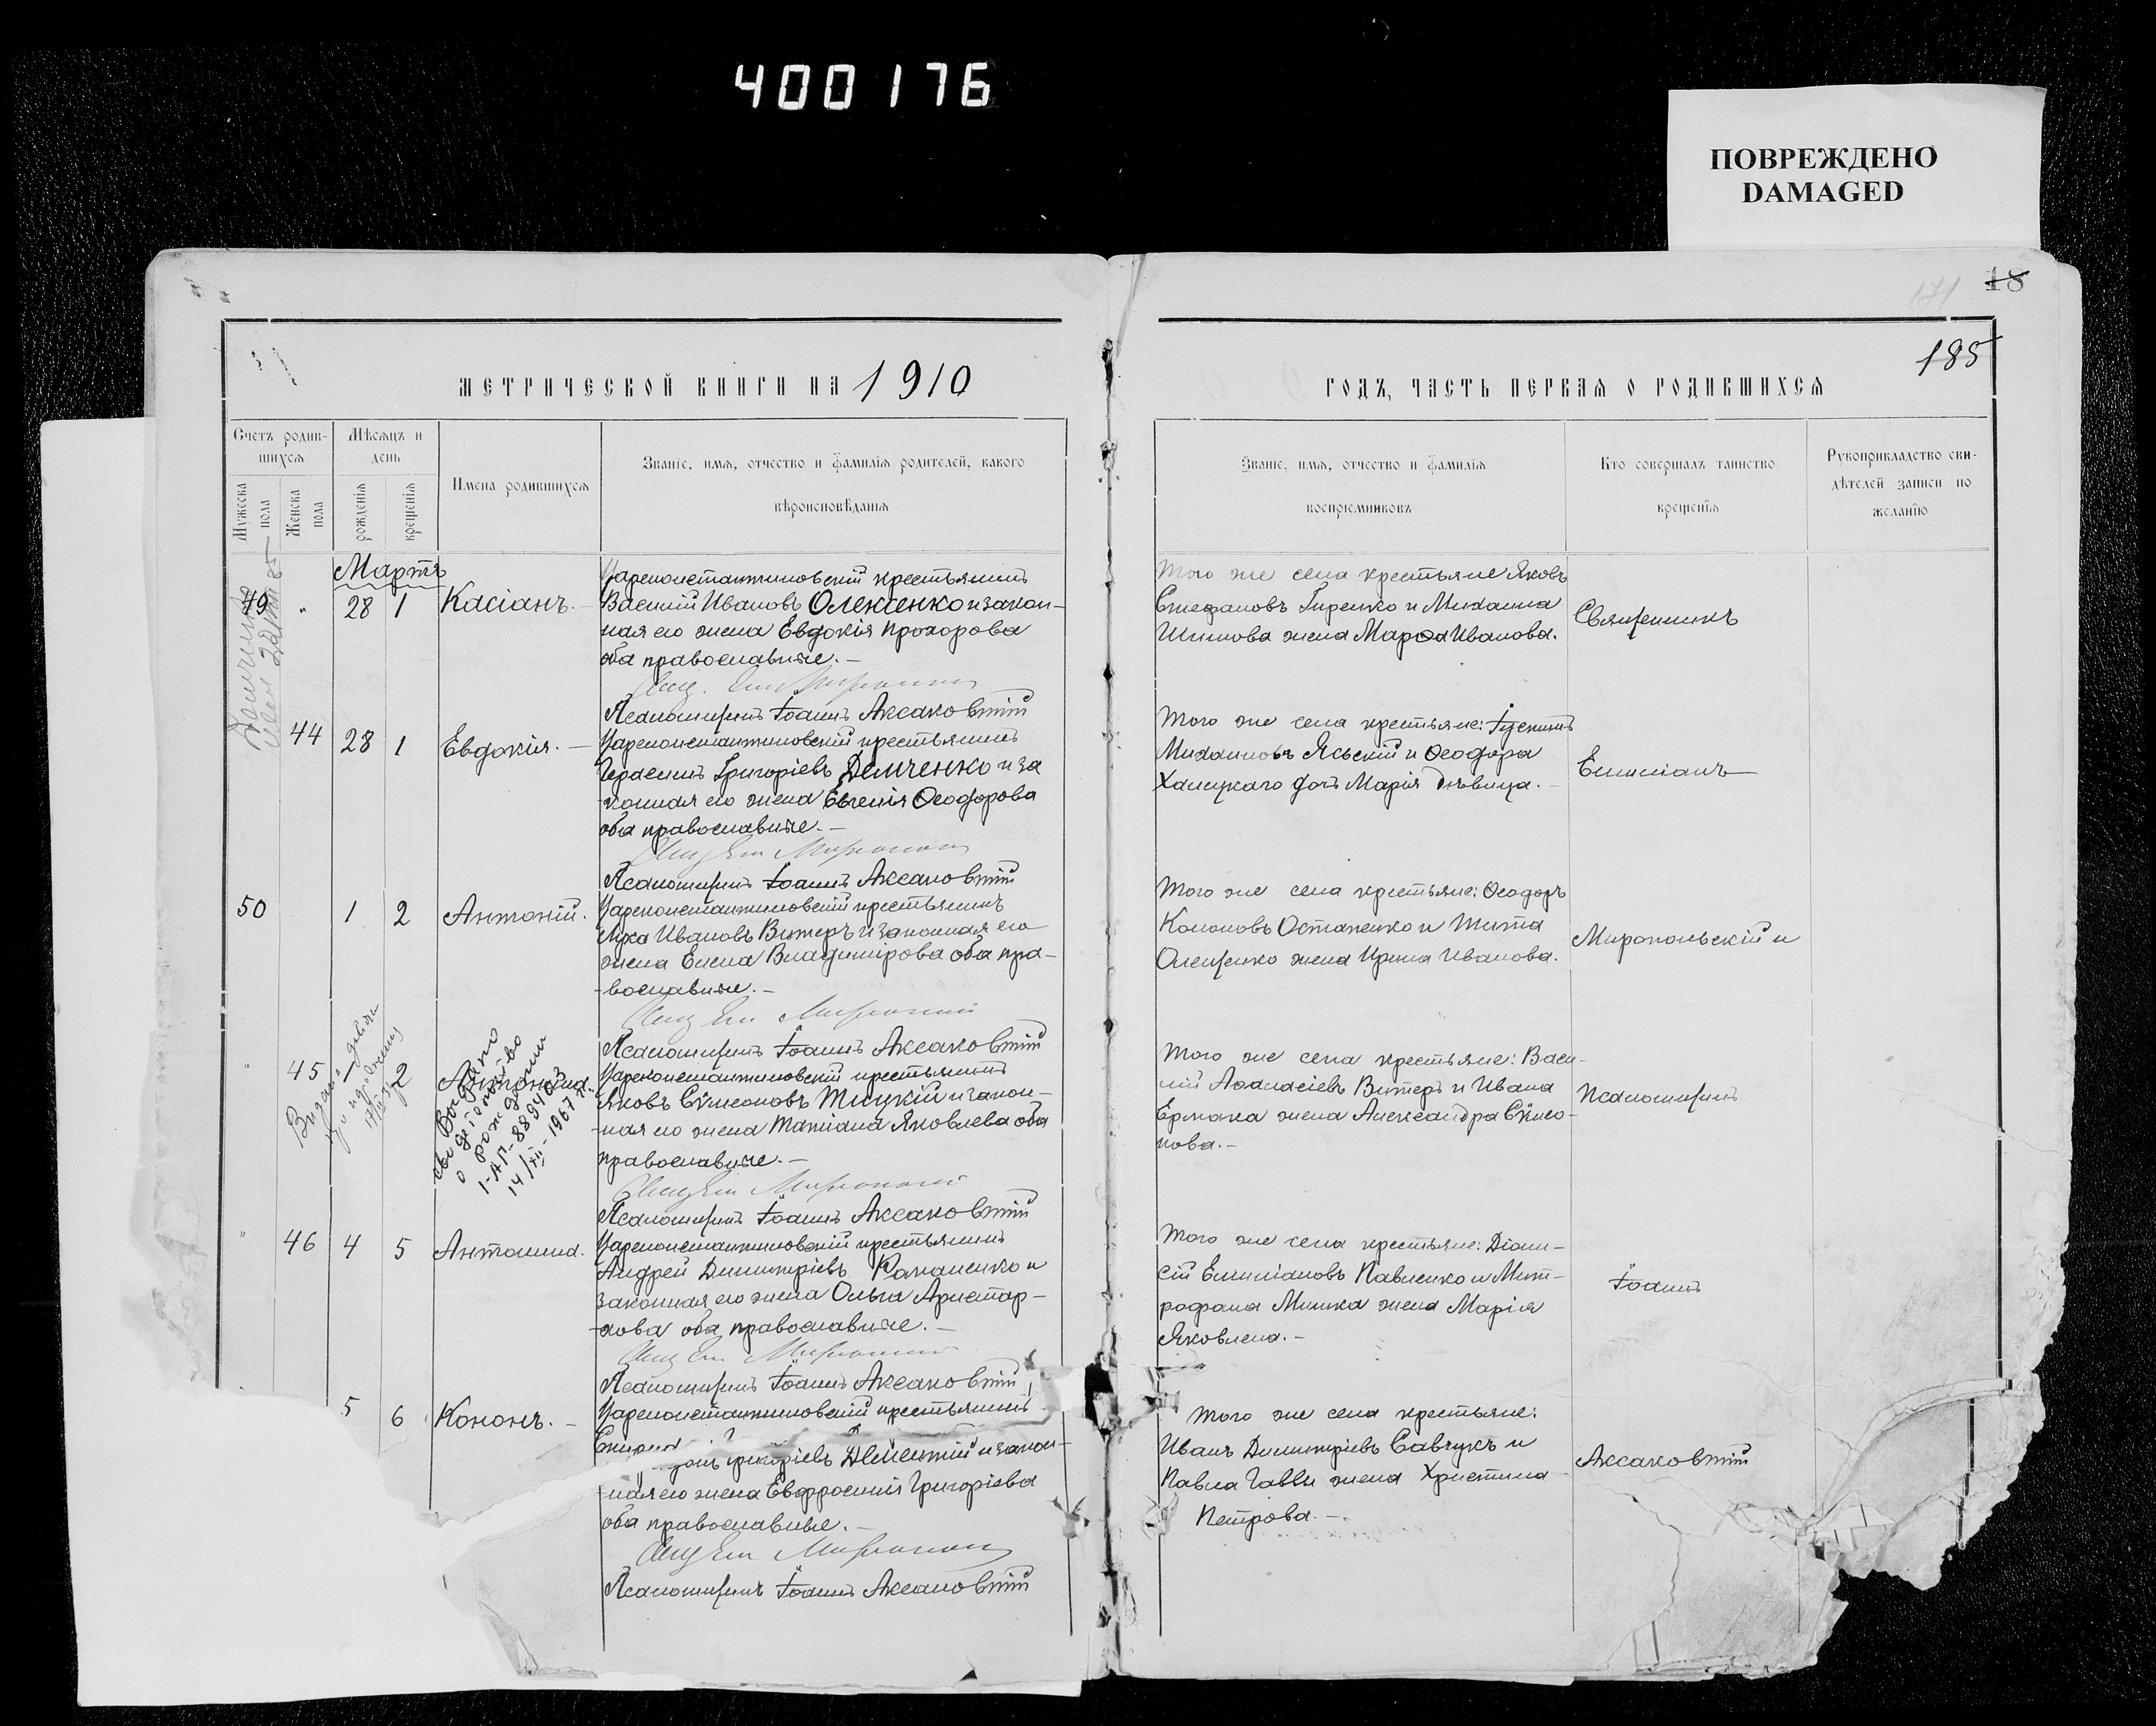 400176
ПОВРЕЖДЕНО
DAMAGED
18
171
185
МЕТРИЧЕСКОЙ КНИГИ НА 1910
ГОДЪ, ЧАСТЬ ПЕРВАЯ О РОДИВШИХСЯ
Счетъ родив-
шихся
Мужеска пола
Женска пола
Мѣсяцъ и
день
рожденія
крещенія
Имена родившихся
Званіе, имя, отчество и фамилія родителей, какого
вѣроисповѣданія
Званіе, имя, отчество и фамилія
воспріемниковъ
Кто совершалъ таинство
крещенія
Рукоприкладство сви-
дѣтелей записи по
желанію
Мартъ
49 " 28 1 Касіанъ.
Цареконстантиновскій крестьянинъ
Василій Ивановъ Олексенко и закон-
ная его жена Евдокія Прохорова
оба православные.
Того же села крестьяне Яковъ
Стефановъ Гиренко и Михаила
Шимова жена Марѳа Иванова.
Священникъ
Псаломщикъ Іоаннъ Аксаковскій
44 28 1 Евдокія.
Цареконстантиновскій крестьянинъ
Герасимъ Григоріевъ Демченко и за
конная его жена Евгенія Ѳеодорова
оба православные.
Того же села крестьяне:
Михаиловъ Яській и Ѳеодора
Халицкаго дочь Марія дѣвица.
Емиліанъ
Псаломщикъ Іоаннъ Аксаковскій
50 1 2 Антоній.
Цареконстантиновскій крестьянинъ
Лука Ивановъ Витеръ и законная его
жена Елена Владимірова оба пра-
вославные.
Того же села крестьяне: Ѳеодоръ
Кононовъ Остапенко и Тита
Олещенко жена Ирина Иванова.
Миропольскій и
Псаломщикъ Іоаннъ Аксаковскій
" 45 1 2 Антонина.
Видано
свидетельство
о рождении
1-АП-889463
14/XII-1967 г.
Цареконстантиновскій крестьянинъ
Яковъ Сѵмеоновъ Тицкій и закон-
ная его жена Татіана Яковлева оба
православные.
Того же села крестьяне: Васи-
лій Аѳанасіевъ Витеръ и Ивана
Ермака жена Александра Сѵмео-
нова.
Псаломщикъ
Псаломщикъ Іоаннъ Аксаковскій
" 46 4 5 Антонина.
Цареконстантиновскій крестьянинъ
Андрей Димитріевъ Рапаненко и
законная его жена Ольга Аристар-
хова оба православные.
Того же села крестьяне: Діони-
сій Емиліановъ Павленко и Мит-
рофана Мишка жена Марія
Яковлева.
Іоаннъ
Псаломщикъ Іоаннъ Аксаковскій
5 6 Кононъ.
Цареконстантиновскій крестьянинъ
Григоріевъ Дементій и закон-
ная его жена Евфросинія Григоріева
оба православные.
Того же села крестьяне:
Иванъ Димитріевъ Савчукъ и
Павла Саввы жена Христина
Петрова.
Аксаковскій
Псаломщикъ Іоаннъ Аксаковскій